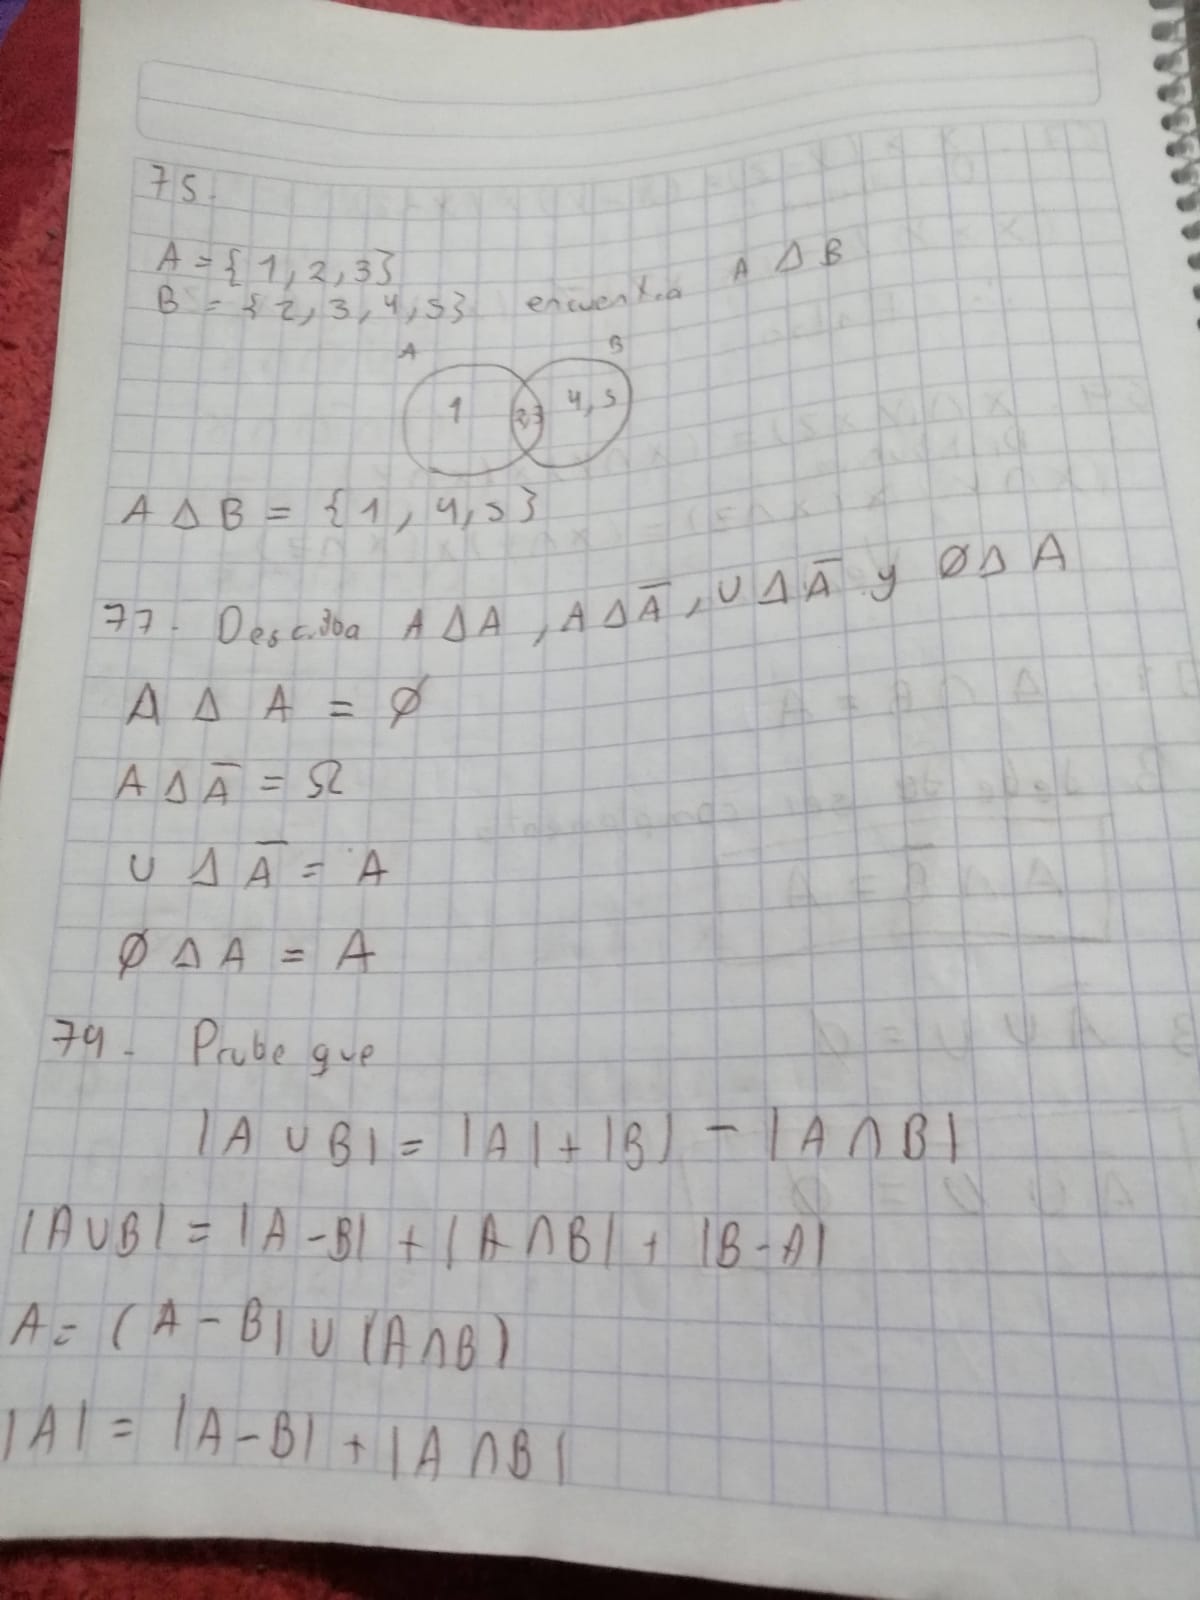 75.
A = {1, 2, 3}
B = {2, 3, 4, 5} encuentra A Δ B
A B
1 2,3 4, 5
A Δ B = {1, 4, 5}
77. Describa A Δ A, A Δ A̅, U Δ A̅ y Ø Δ A
A Δ A = Ø
A Δ A̅ = Ω
U Δ A̅ = A
Ø Δ A = A
79. Prube que
|A ∪ B| = |A| + |B| - |A ∩ B|
|A ∪ B| = |A - B| + |A ∩ B| + |B - A|
A = (A - B) ∪ (A ∩ B)
|A| = |A - B| + |A ∩ B|